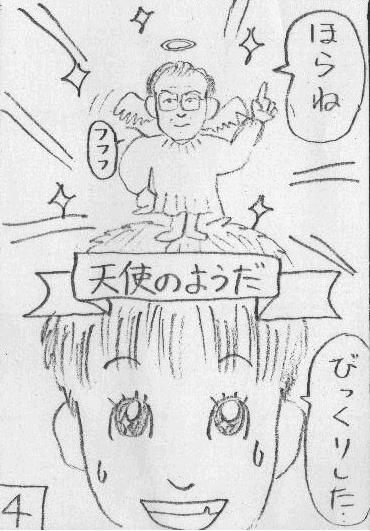 ほらね
フフフ
天使のようだ
びっくりした.
4